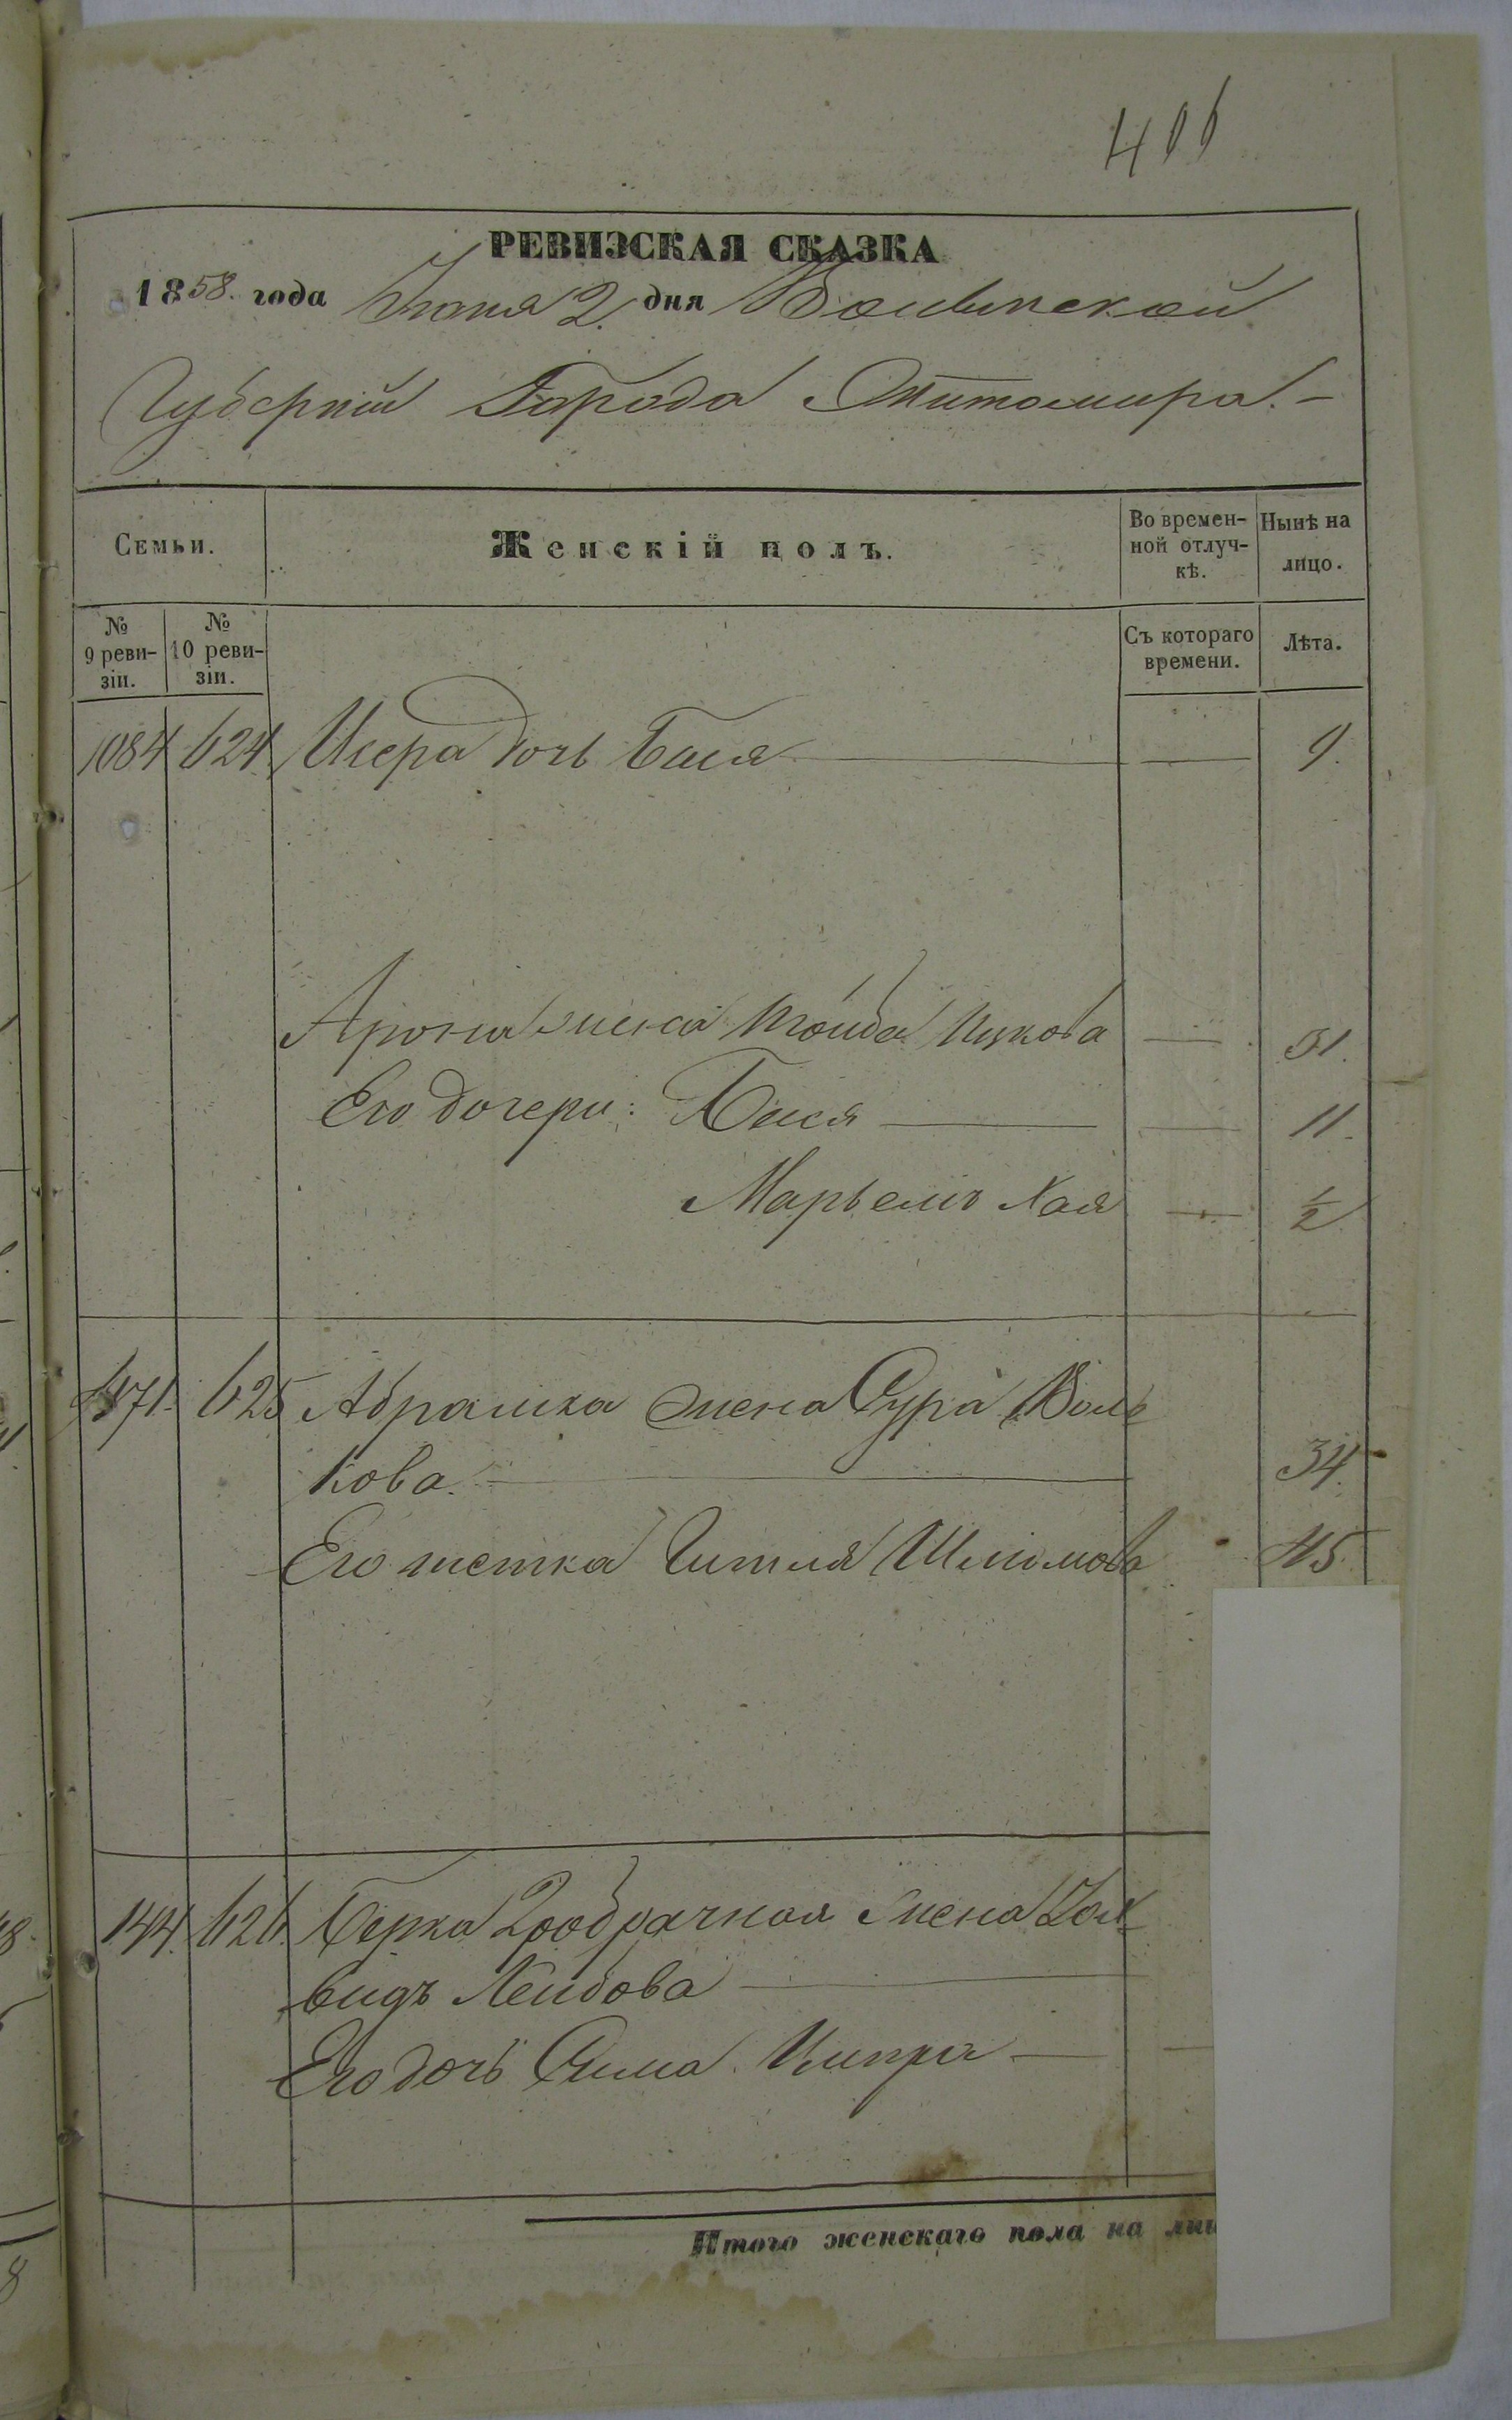 406
РЕВИЗСКАЯ СКАЗКА
1858. года Іюня 2. дня Волынской
Губерніи Города Житомира. –
Семьи.
Женскій полъ.
Во времен-
ной отлуч-
кѣ.
Нынѣ на
лицо.
№
9 реви-
зіи.
№
10 реви-
зіи.
Съ котораго
времени.
Лѣта.
1084 624 дочь Бася — — 9.
Арона жена Ицкова — 31.
Его дочери: Бася — — 11.
Марьемъ Хая — 1/2
625 Абрашка жена Сура Воль
кова. — 34.
Его тетка Гитля Шлиомова 45
144. 626. Берка 2хобрачная жена
Лейбова —
Его дочь Сима —
Итого женскаго пола на